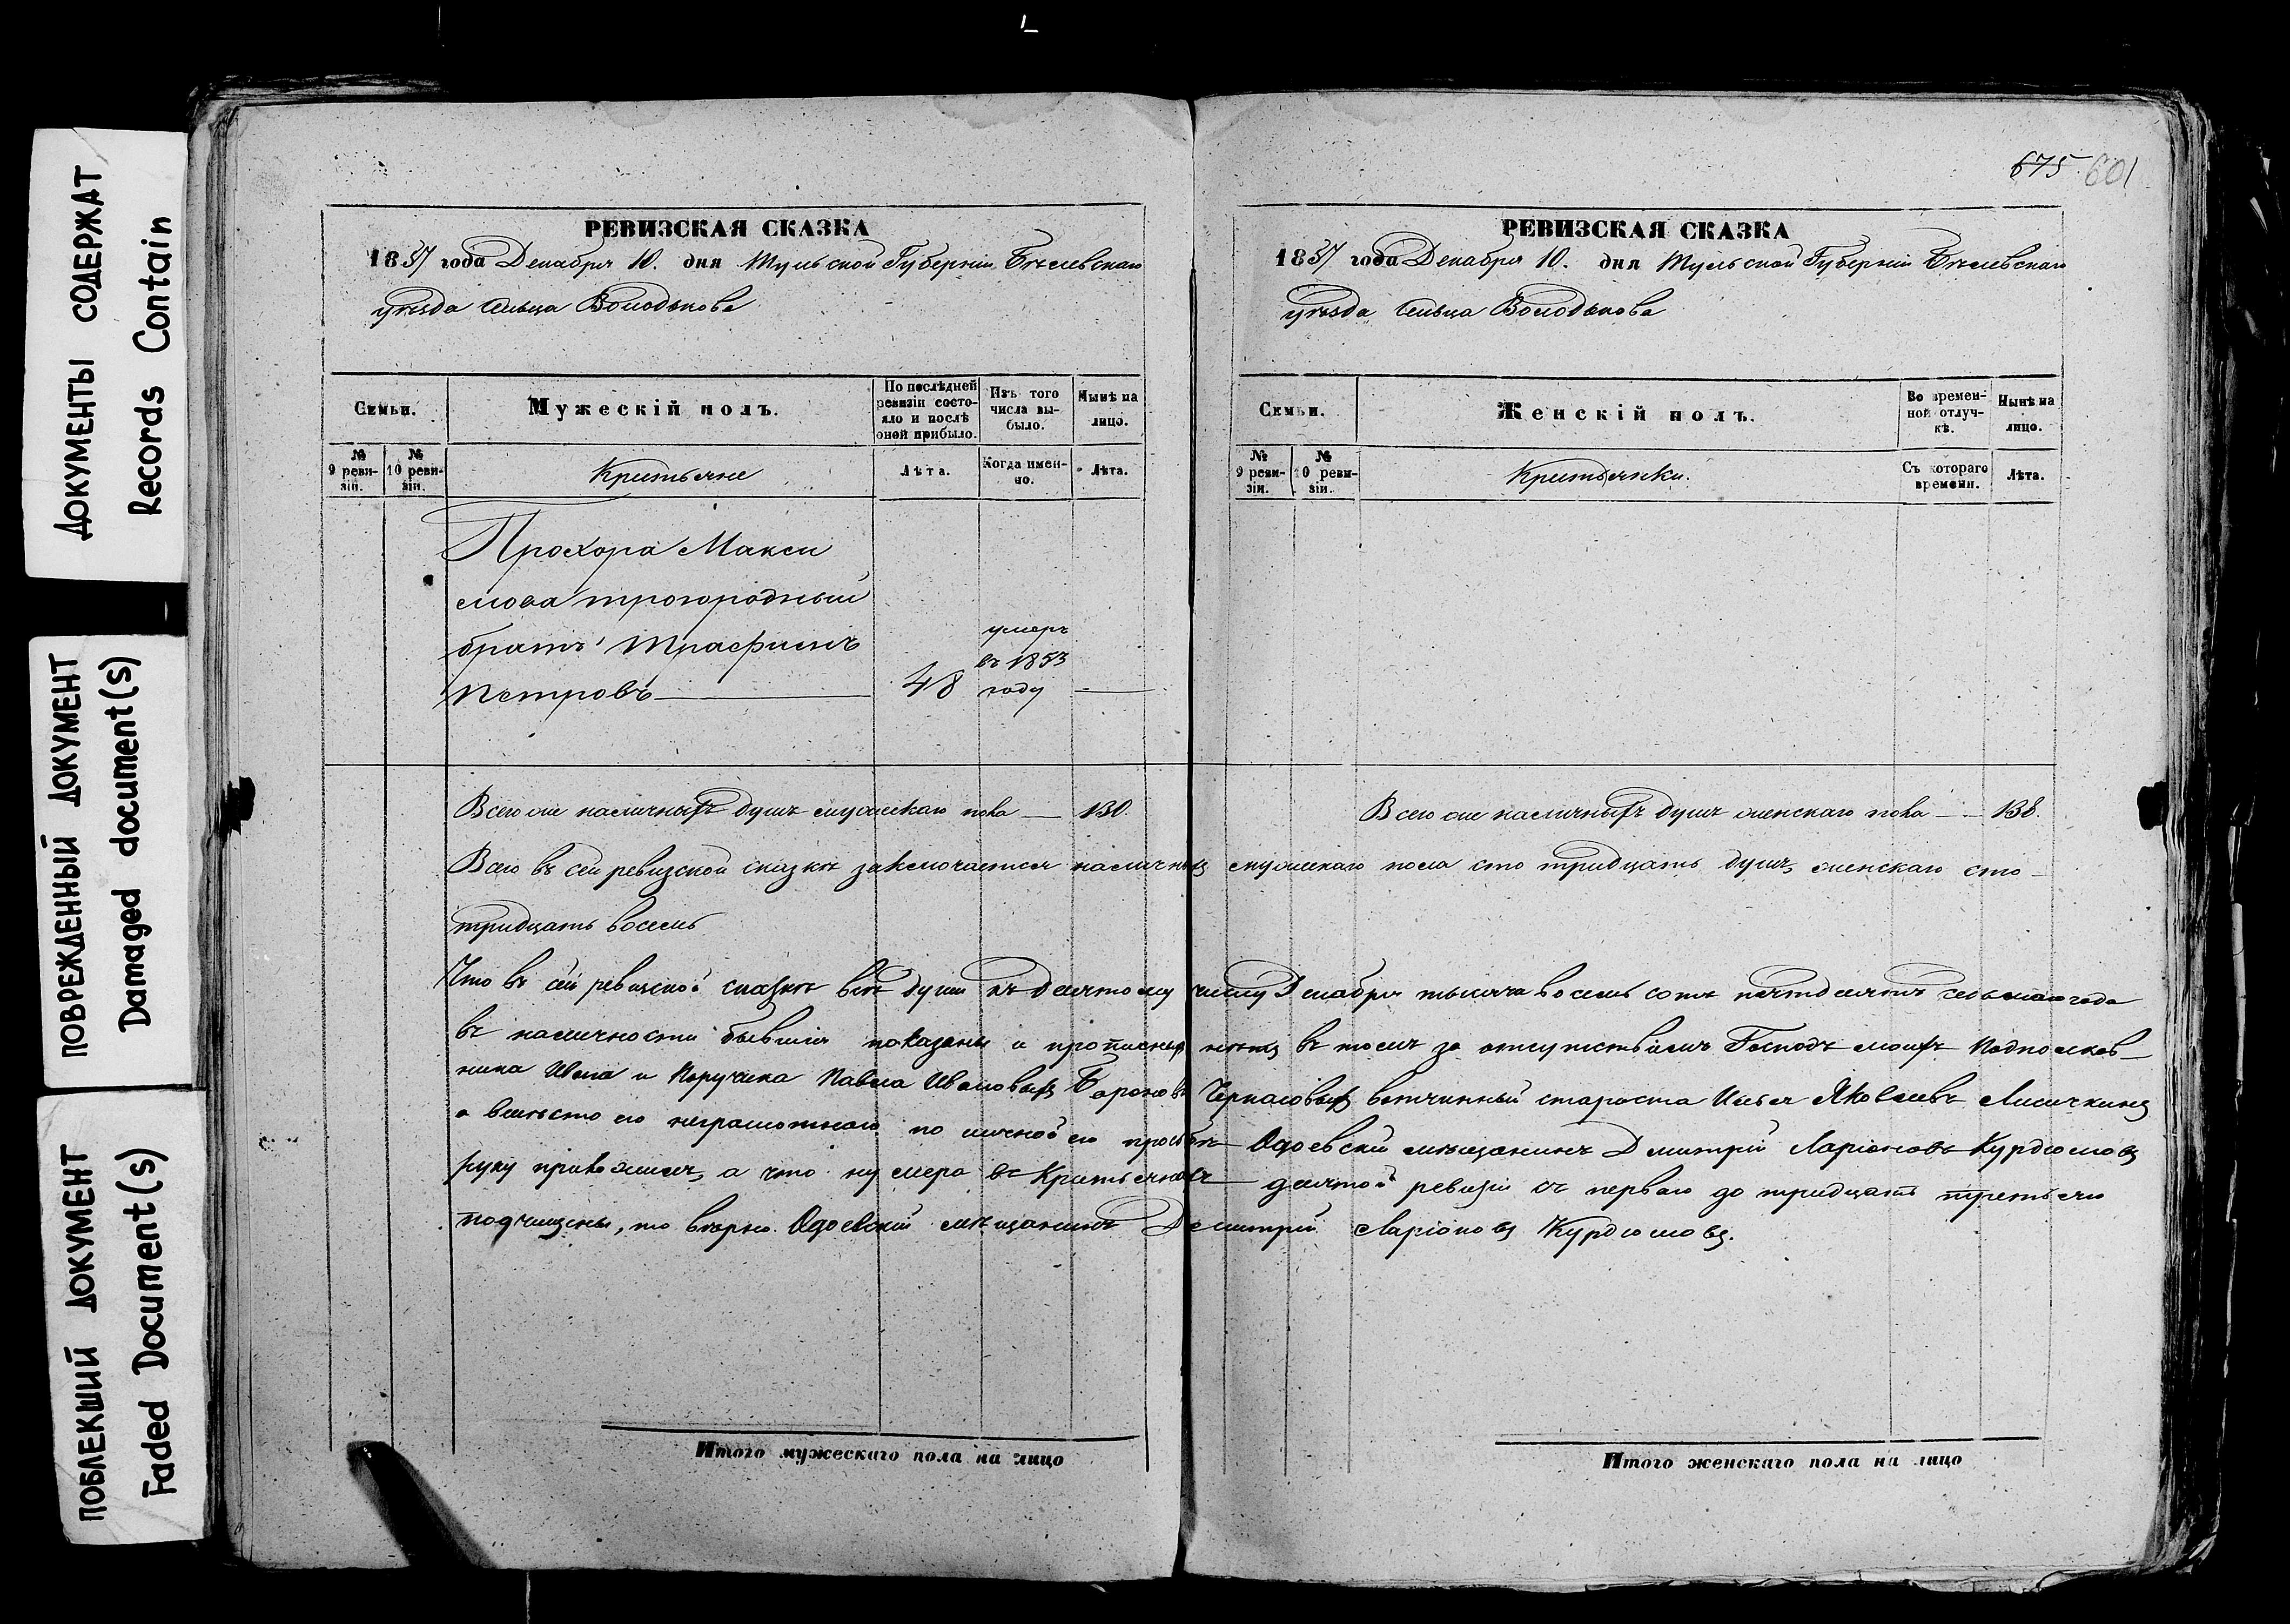 ДОКУМЕНТЫ СОДЕРЖАТ
Records Contain
ПОВРЕЖДЕННЫЙ ДОКУМЕНТ
Damaged document(s)
ПОБЛЕКШИЙ ДОКУМЕНТ
Faded Document(s)
РЕВИЗСКАЯ СКАЗКА
1857 года Декабря 10. дня Тульской Губерніи Бѣлевскаго
уѣзда сельца Володькова
Семьи.
Мужескій полъ.
По послѣдней
ревизіи состо-
яло и послѣ
оной прибыло.
Изъ того
числа вы-
было.
Нынѣ на
лицо.
№
9 реви-
зіи.
№
10 реви-
зіи.
Крестьяне
Лѣта.
Когда имен-
но.
Лѣта.
Прохора Макси
мова троюродный
братъ Трафимъ
Петровъ — 48
умеръ
въ 1853
году —
Всего же наличныхъ душъ мужескаго пола — 130.
675. 601
РЕВИЗСКАЯ СКАЗКА
1857 года Декабря 10. дня Тульской Губерніи Бѣлевскаго
уѣзда сельца Володькова
Семьи.
Женскій полъ.
Во времен-
ной отлуч-
кѣ.
Нынѣ на
лицо.
№
9 реви-
зіи.
№
10 реви-
зіи.
Крестьянки.
Съ котораго
времени.
Лѣта.
Всего же наличныхъ душъ женскаго пола — 138.
Всего въ сей ревизской сказкѣ заключается наличныхъ мужескаго пола сто тридцать душъ, женскаго сто
тридцать восемь
Что въ сей ревизской сказкѣ всѣ души къ десятому числу Декабря тысяча восемь сотъ пятдесятъ седьмаго года
въ наличности бывшія показаны и прописныхъ нѣтъ въ томъ за отсутствіемъ Господъ моихъ Подполков-
ника Ивана и Поручика Павла Ивановыхъ Бароновъ Черкасовыхъ вотчинный староста Илья Яковлевъ Лисичкинъ
а вмѣсто его неграмотнаго по личной его просьбѣ Одоевскій мѣщанинъ Дмитрій Ларіоновъ Курдюмовъ
руку приложилъ, а что нумера въ Крестьянахъ десятой ревизіи съ перваго до тридцать третьяго
подчищены, то вѣрно. Одоевскій мѣщанинъ Дмитрій Ларіоновъ Курдюмовъ.
Итого мужескаго пола на лицо
Итого женскаго пола на лицо